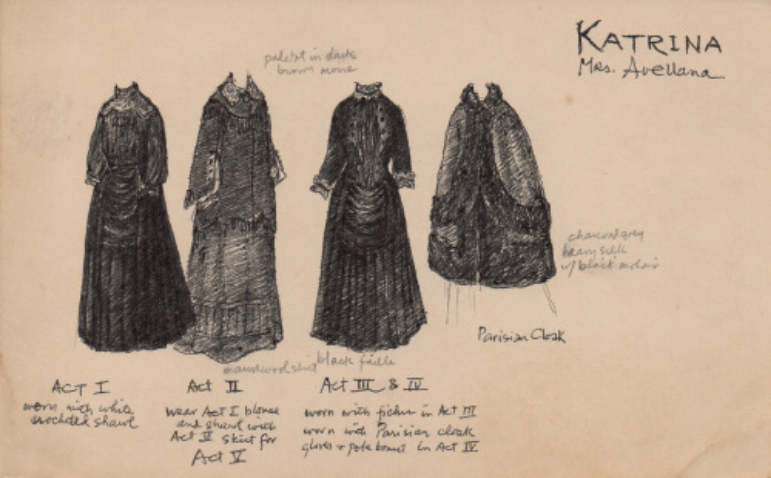 KATRINA
Mrs. Avellana
paletot in dark
brown moire
charcoal grey
heavy silk
w/ black mohair
Parisian Cloak
wool skirt
black faille
ACT I
worn with white
crocheted shawl
Act II
wear Act I blouse
and shawl with
Act II skirt for
Act V
Act III & IV
worn with fichu in Act III
worn with Parisian cloak
gloves & poke bonnet in Act IV